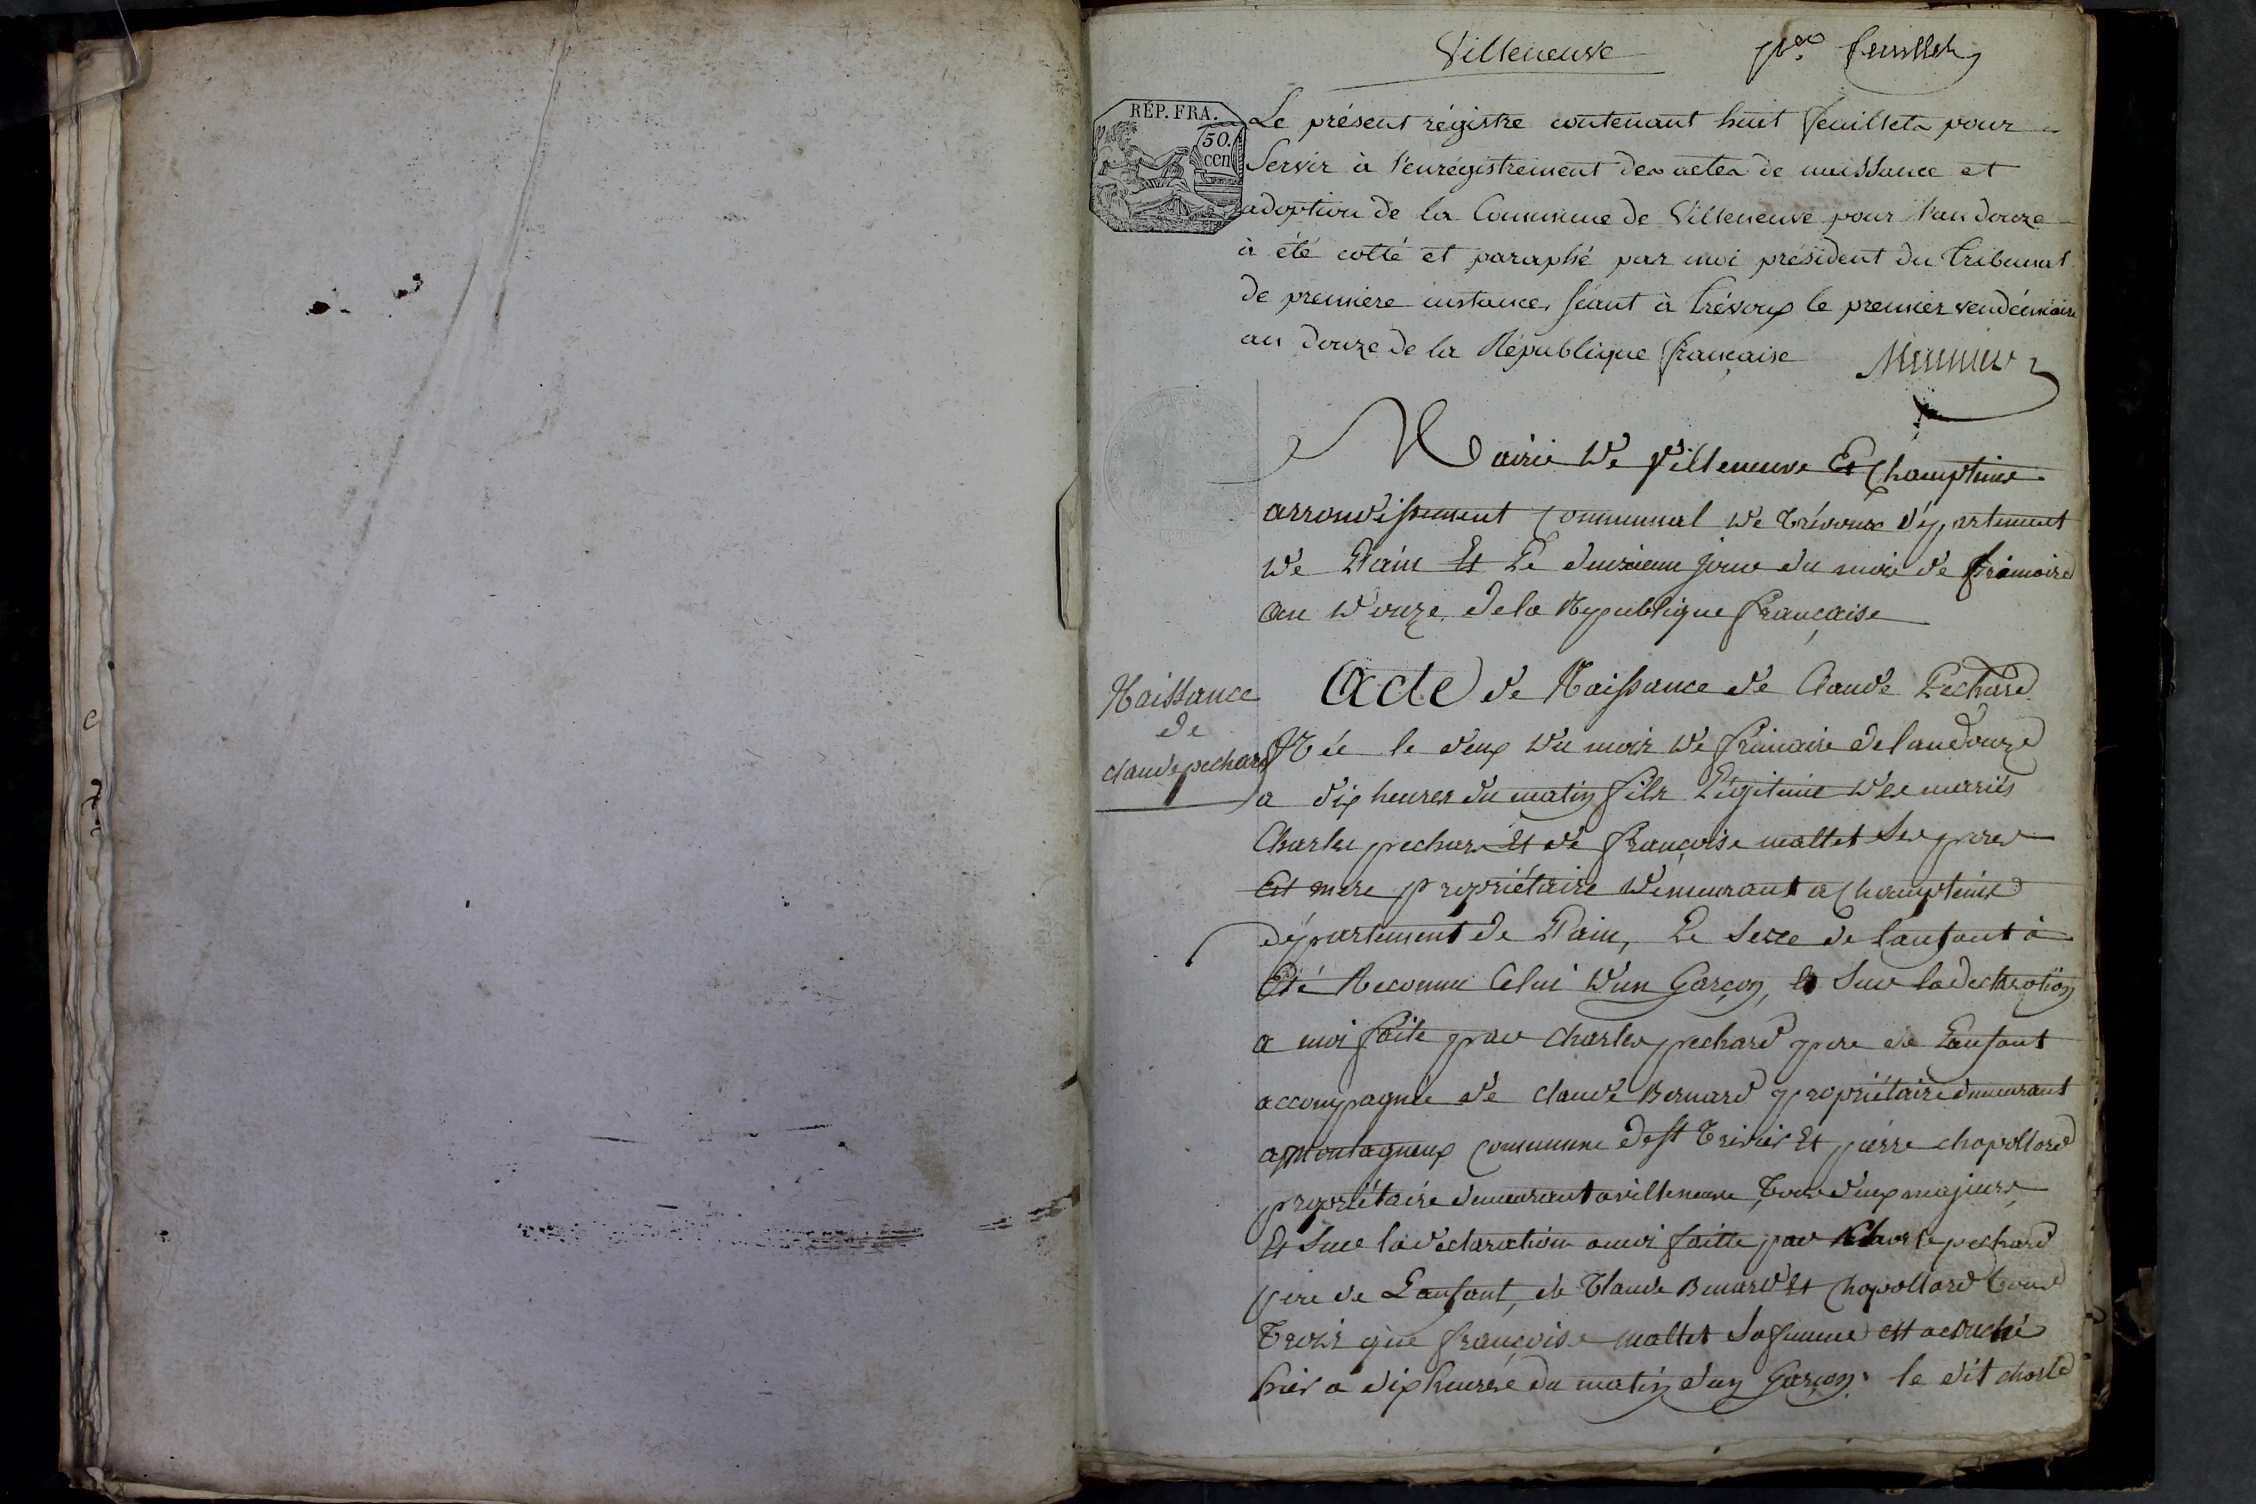 Villeneuve pr. feuillet
RÉP. FRA.
50.
cen
Le présent régistre contenant huit feuillets pour
Servir à l'enrégistrement des actes de naissance et
adoption de la Commune de Villeneuve pour l'an douze
à été cotté et paraphé par moi président du tribunal
de premiere instance, séant à Trévoux le premier vendémiaire
an douze de la République française Meunier
Mairie de Villeneuve Et Champteins
arrondissement communal de trévoux département
de L'ain Et Le deuxieme jour du mois de frimaire
an douze de la Republique française
Naissance
de
claude pechard
Acte de Naissance de Claude Pechard
Née le deux du mois de frimaire de lan douze
a dix heures du matin fils Légitime des mariés
Charles pechard Et de françoise mallet Ses peres
Et mere propriétaire demeurant a Champteins
département de L'ain, Le Sexe de lanfant à
Eté Reconnu Celui d'un Garçon, Sur la declaration
a moi faite par charles pechard pere de Lanfant
accompagnée de claude Bernard propriétaire demeurant
a montagneux commune de st trivier Et pierre chapollard
propriétaire demeurant a villeneuve, tous deux majeurs
Et Sur la déclaration a moi faitte par Charle pechard
pere de Lanfant, de Claude Benard Et Chapollard tous
trois que françoise mallet Sa femme est acouché
hier a dix heures du matin d'un Garçon, le dit charle